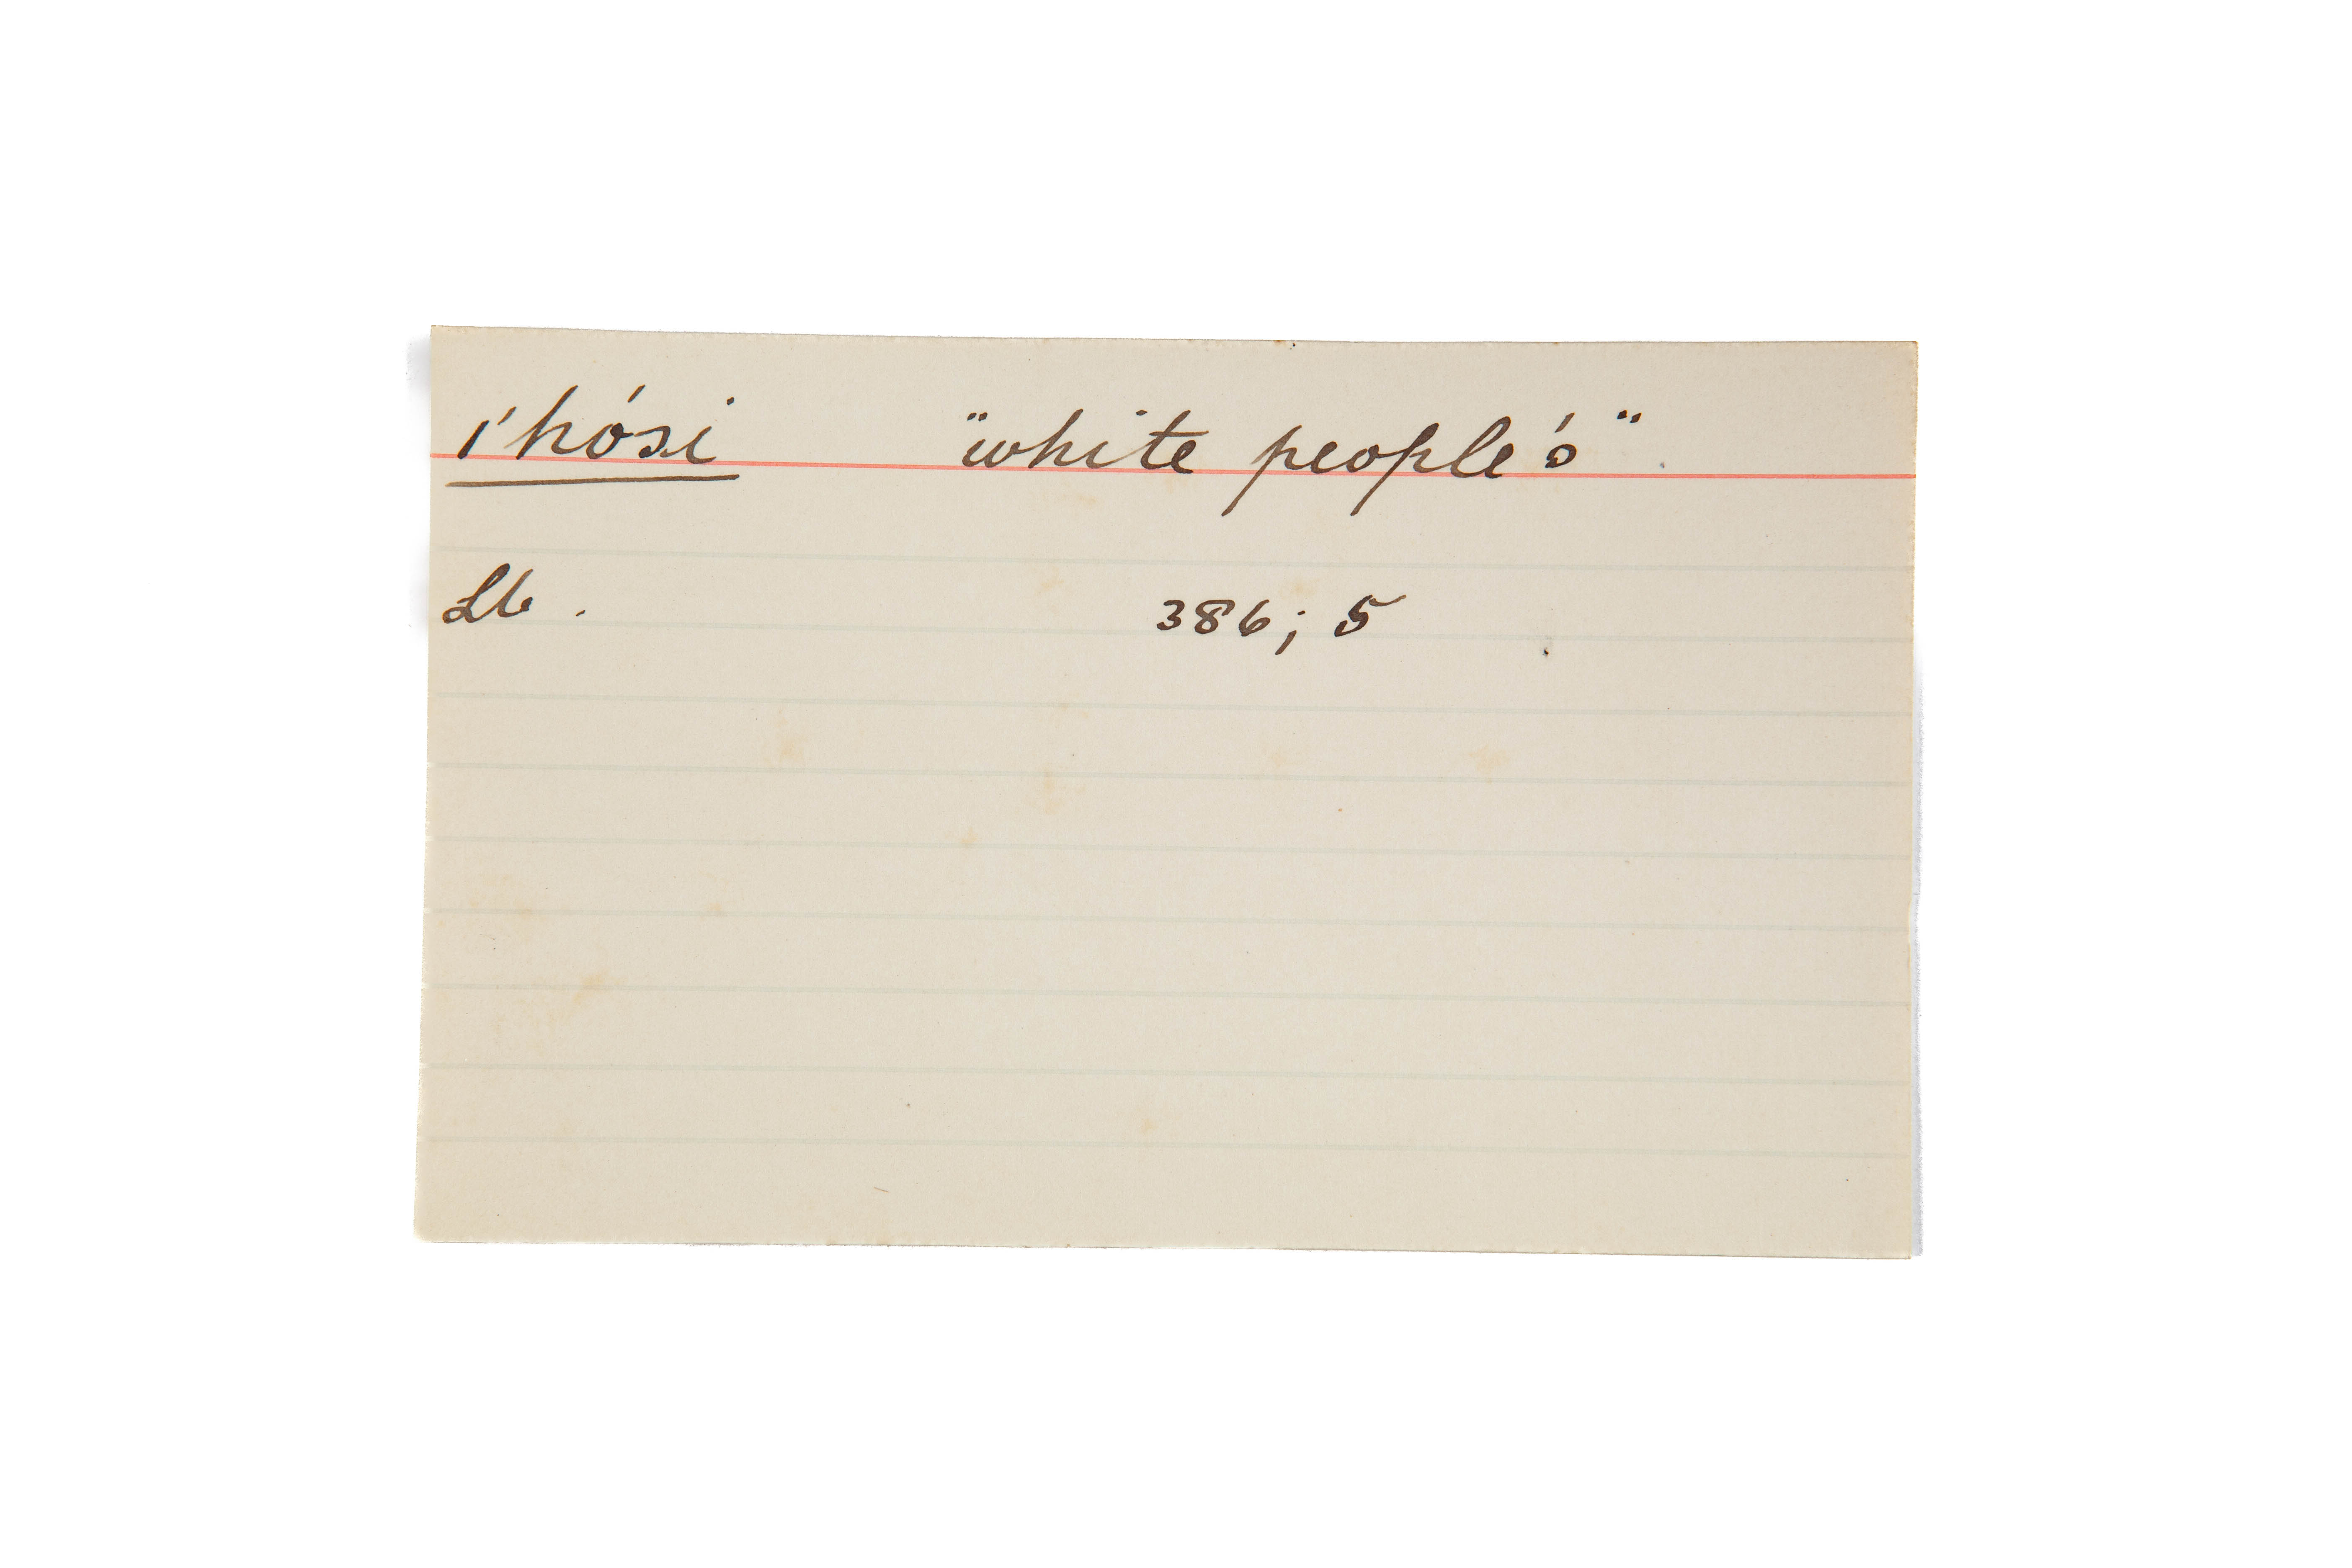 íhósi "white people's".
Lb. 386; 5